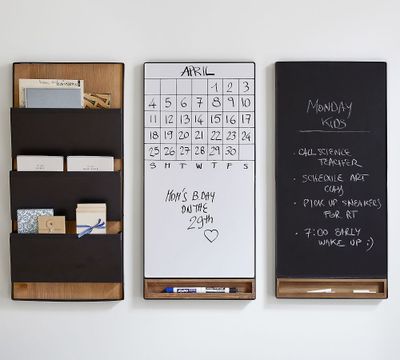 APRIL
1 2 3
4 5 6 7 8 9 10
11 12 13 14 15 16 17
18 19 20 21 22 23 24
25 26 27 28 29 30
S M T W T F S
MOM'S B.DAY
ON THE
29th
MONDAY
KIDS
• CALL SCIENCE
TEACHER
• SCHEDULE ART
CLAY
• PICK UP SNEAKERS
FOR RT
• 7:00 EARLY
WAKE UP :)